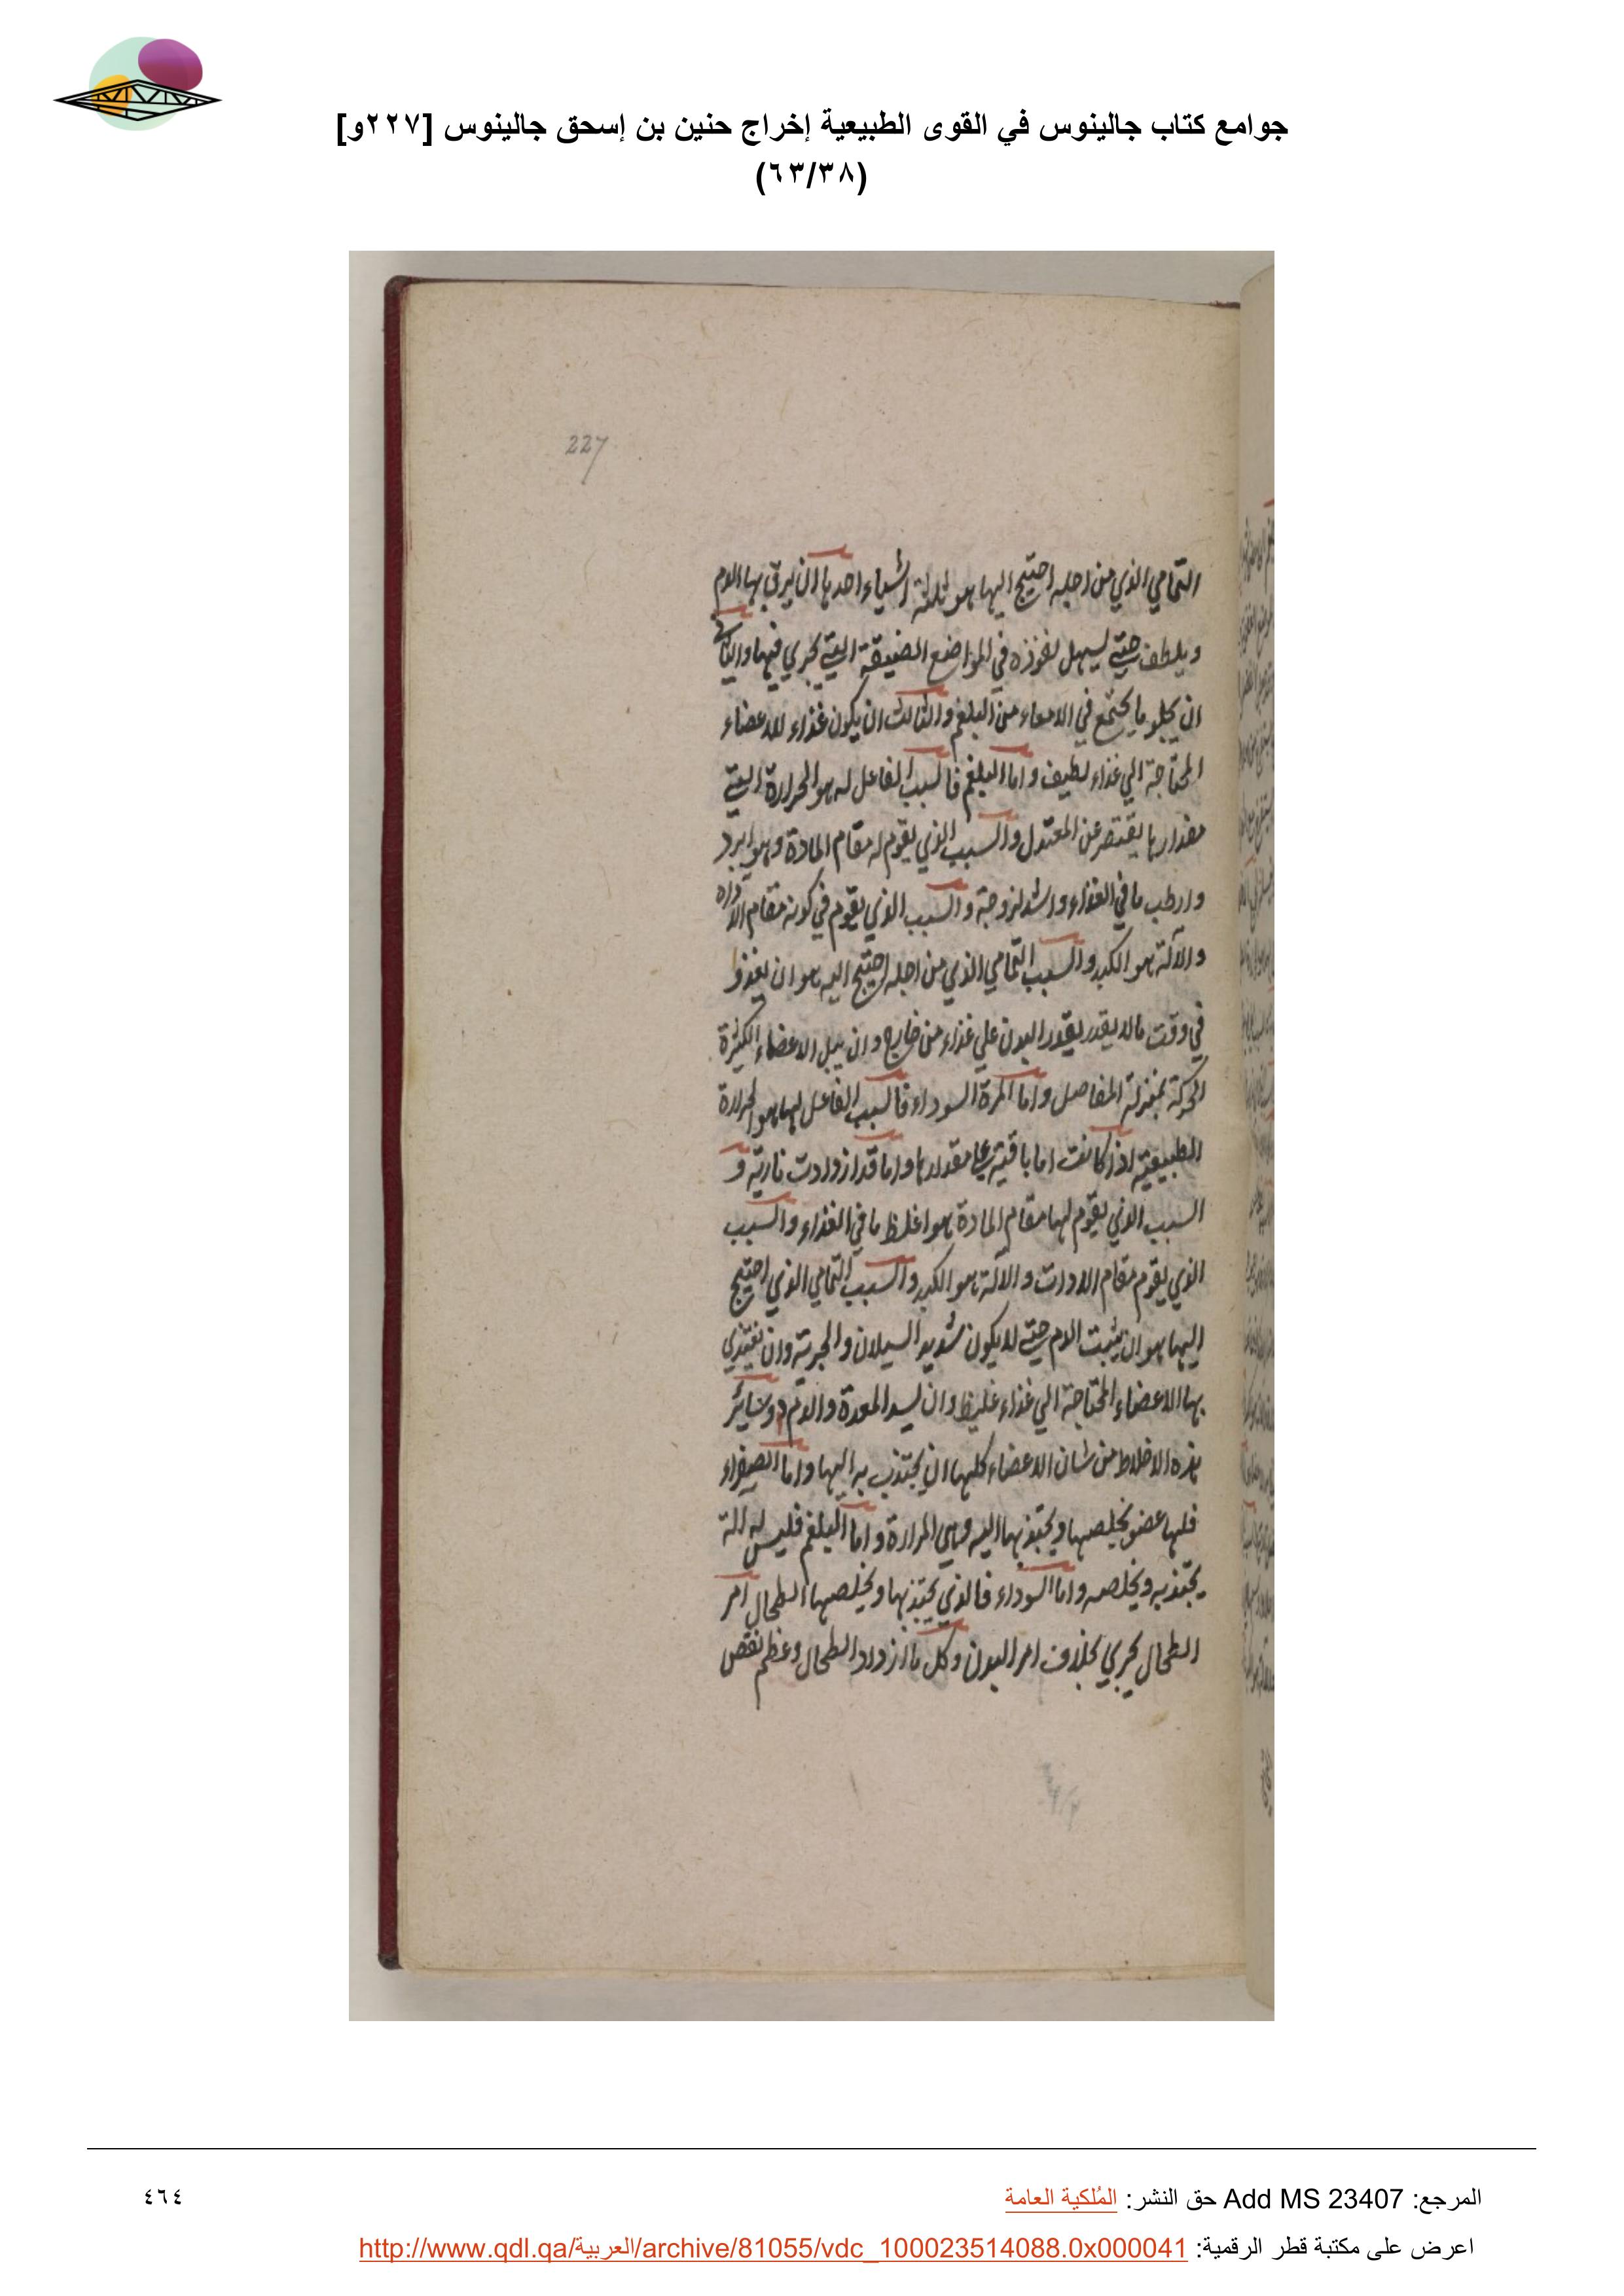 جوامع كتاب جالينوس في القوى الطبيعية إخراج حنين بن إسحق جالينوس [٢٢٧و]
(٦٣/٣٨)
227
التمامي الذي من اجله احتيج اليها هو ثلثة اشياء احدها ان يرق بها الدم
ويلطف حتي ليسهل نفوذه في المواضع الضيقة التي يجري فيها والثاني
ان يجلو ما يجتمع في الامعاء من البلغم والثالث ان يكون غذاء للاعضاء
المحتاجة الي غذاء لطيف واما البلغم فالسبب الفاعل له هو الحرارة التي
مقدارها يقتصر عن المعتدل والسبب الذي يقوم له مقام المادة وهو ابرد
وارطب ما في الغذاء واشد لزوجة والسبب الذي يقوم في كونه مقام الاداه
والآلة هو الكبد والسبب التمامي الذي من اجله احتيج اليه هو ان يغذو
في وقت ما لا يقدر البدن علي غذاء من خارج وان يبل الاعضاء الكثيرة
الحركة بمنزلة المفاصل واما المرة السوداء فالسبب الفاعل لها هو الحرارة
الطبيعية اذا كانت اما باقية علي مقدارها واما قد ازدادت نارية و
السبب الذي يقوم لها مقام المادة هو اغلظ ما في الغذاء والسبب
الذي يقوم مقام الادوات والآلة هو الكبد والسبب التمامي الذي احتيج
اليها هو ان يثبت الدم حتي لا يكون شديد السيلان والجرية وان يغتذي
بها الاعضاء المحتاجة الي غذاء غليظ وان يسد المعدة والدم دون سائر
هذه الاخلاط من شان الاعضاء كلها ان يجتذب به اليها واما الصفراء
فلها عضو يخلصها ويجتذبها اليه وهي المرارة واما البلغم فليس له الة
يجتذبه ويخلصه واما السوداء فالذي يجتذبها ويخلصها الطحال امر
الطحال يجري بخلاف امر البدن وكل ما ازداد الطحال وعظم نقص
المرجع: Add MS 23407 حق النشر: المُلكية العامة
٤٦٤
اعرض على مكتبة قطر الرقمية: http://www.qdl.qa/العربية/archive/81055/vdc_100023514088.0x000041